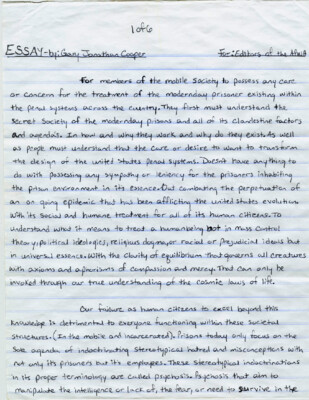 1 of 6
ESSAY - by: Gary Jonathan Cooper For: Editors of the
For members of the mobile society to possess any care
or concern for the treatment of the modernday prisoner existing within
the penal systems across the country. They first must understand the
secret society of the modernday prisons and all of its clandestine factors
and agenda's. In how and why they work and why do they exist. As well
as people must understand that the care or desire to want to transform
the design of the united states penal systems. Doesn't have anything to
do with possessing any sympathy or leniency for the prisoners inhabiting
the prison environment in its essence. Our combating the perpetuation of
an on going epidemic that has been afflicting the united states evolution
with its social and humane treatment for all of its human citizens. To
understand what it means to treat a human being not in mass control
theory, political ideologies, religious dogma, or racial or prejudicial ideas but
in universal essence. With the clarity of equilibrium that governs all creatures
with axioms and aphorisms of compassion and mercy. That can only be
invoked through our true understanding of the cosmic laws of life.
Our failure as human citizens to excel beyond this
knowledge is detrimental to everyone functioning within these societal
structures. (In the mobile and incarcerated). Prisons today only focus on the
sole agenda of indoctrinating stereotypical hatred and misconceptions with
not only its prisoners but its employees. These stereotypical indoctrinations
in its proper terminology are called psychosis. Psychosis that aim to
manipulate the intelligence or lack of, the fear, or need to survive in the